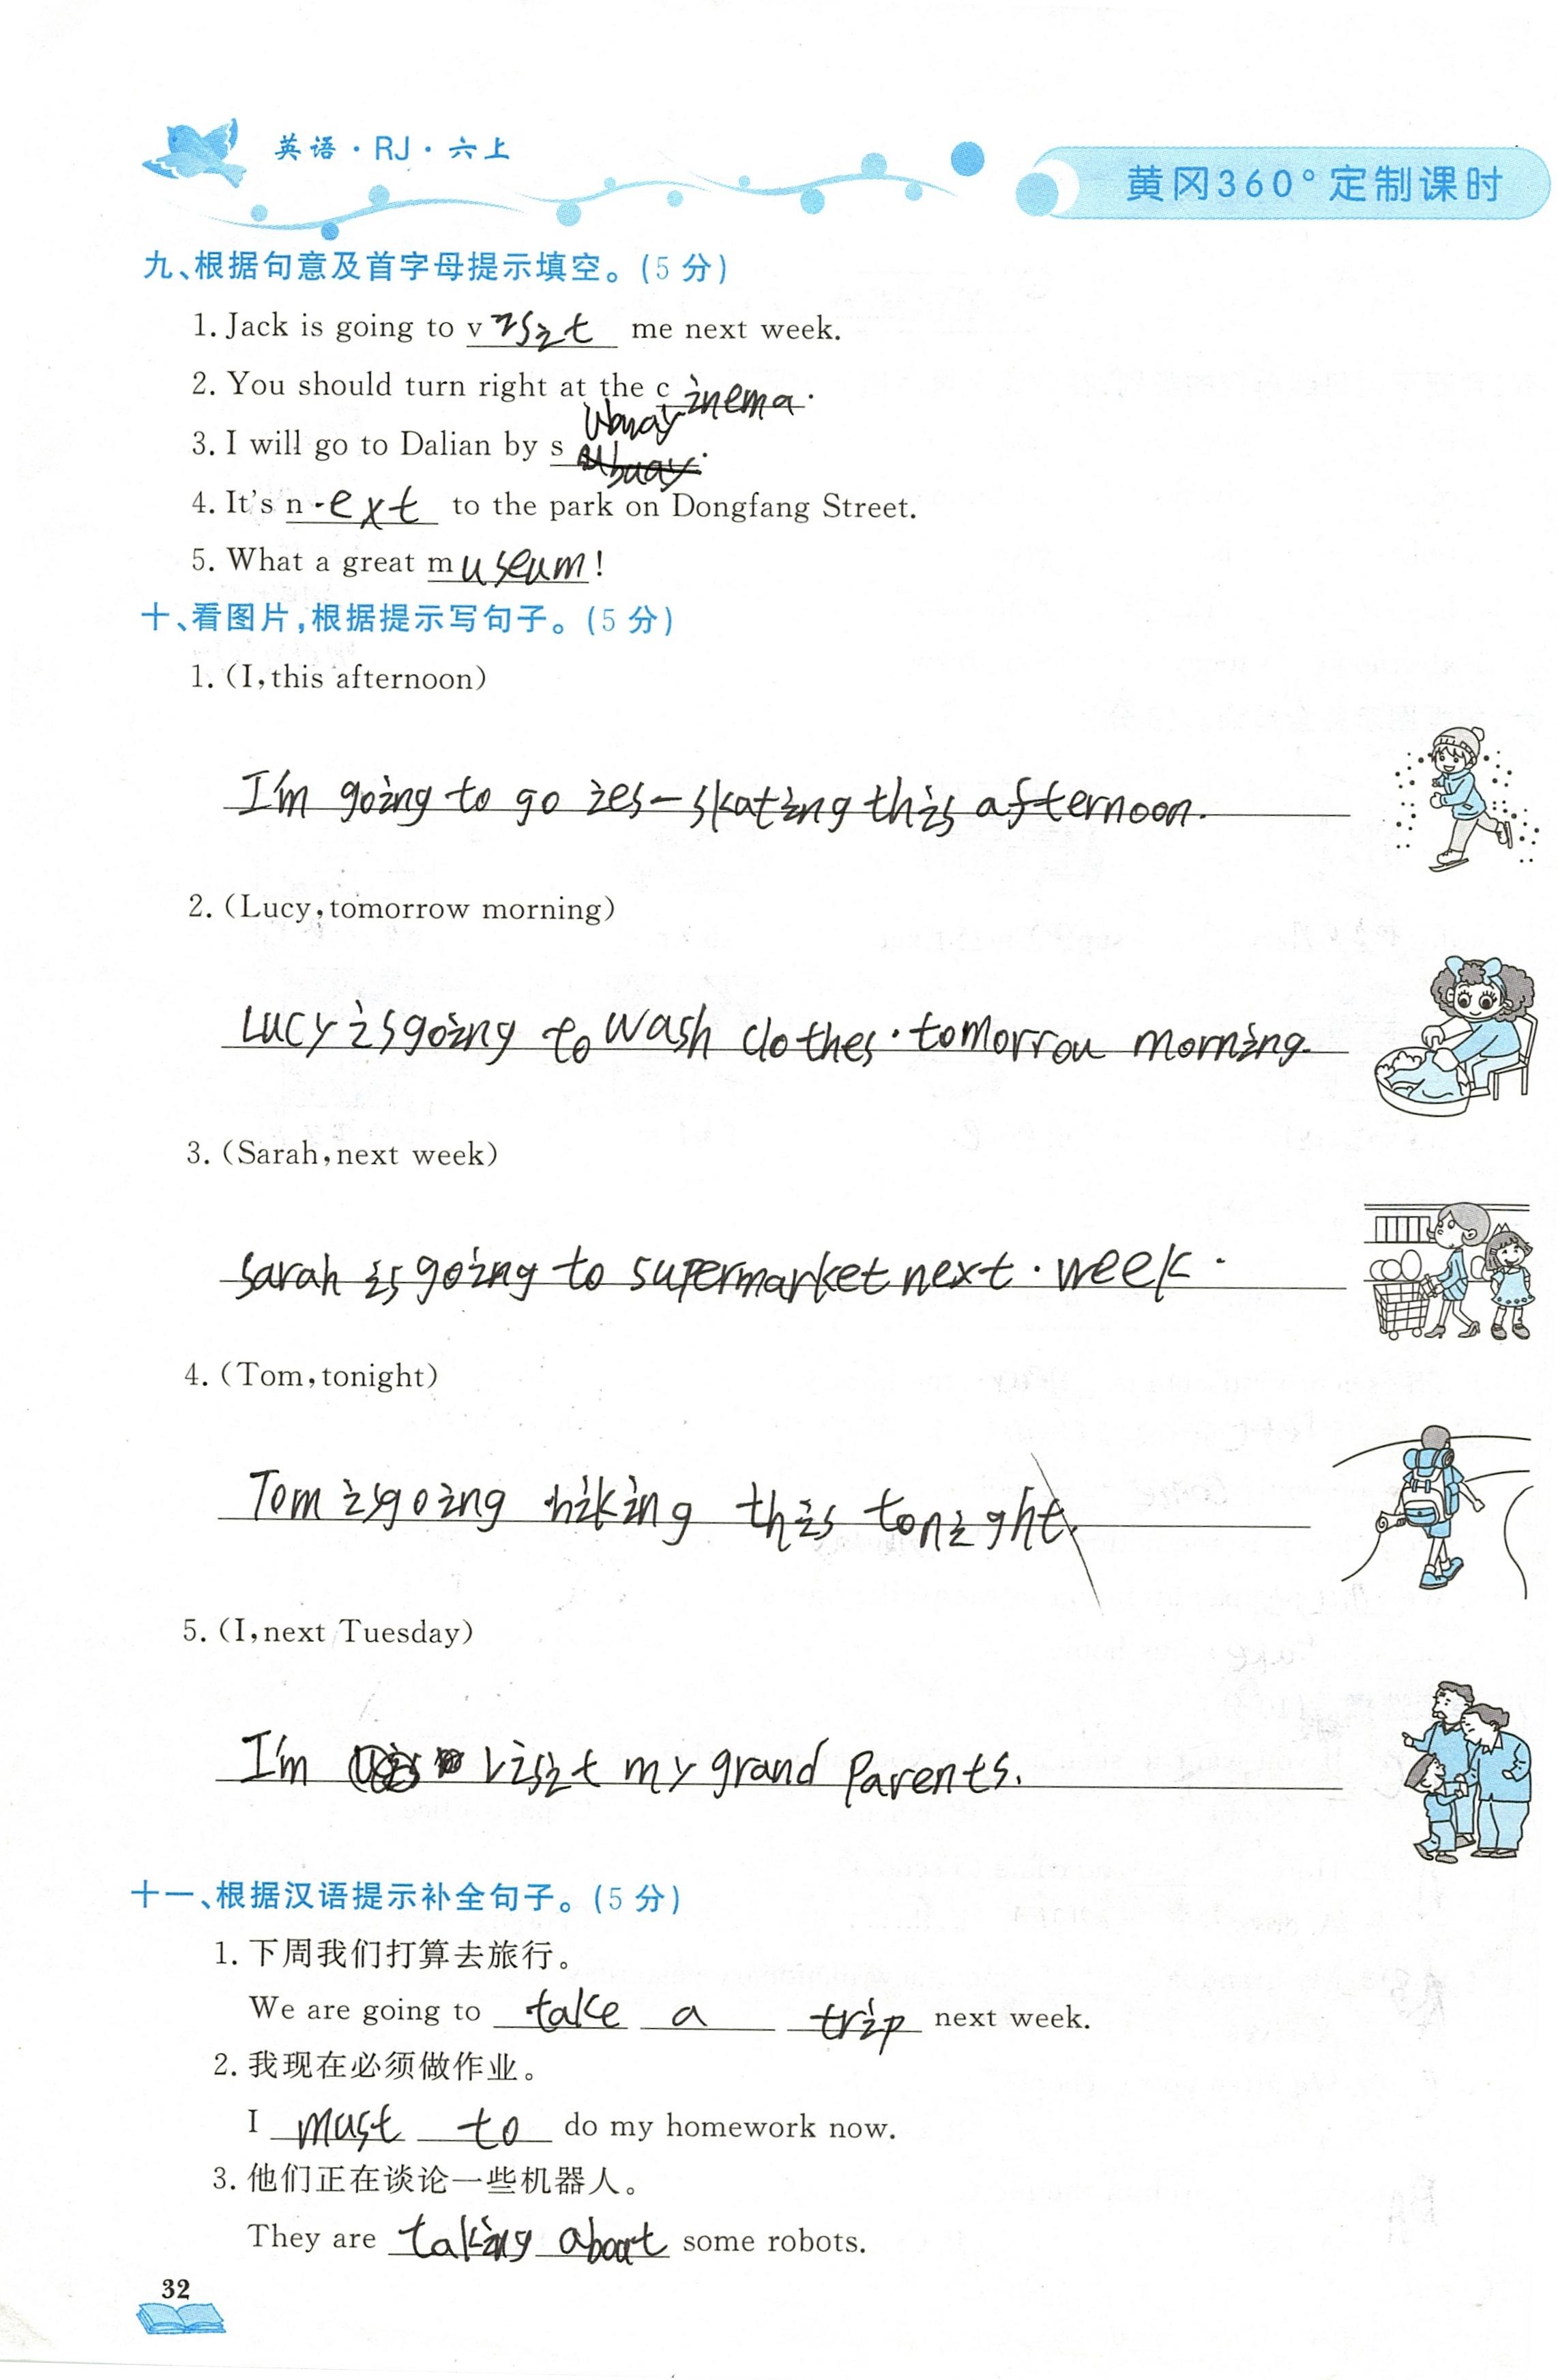 英语·RJ·六上
黄冈360°定制课时
九、根据句意及首字母提示填空。(5分)
1. Jack is going to visit me next week.
2. You should turn right at the cinema.
3. I will go to Dalian by s
4. It's n·ext to the park on Dongfang Street.
5. What a great museum!
十、看图片,根据提示写句子。(5分)
1. (I, this afternoon)
I'm going to go ies-skating this afternoon.
2. (Lucy, tomorrow morning)
Lucy is going to wash clothes·tomorrou morning.
3. (Sarah, next week)
Sarah is going to supermarket next·week.
4. (Tom, tonight)
Tom is going hiking this tonight.
5. (I, next Tuesday)
I'm visit my grand Parents.
十一、根据汉语提示补全句子。(5分)
1. 下周我们打算去旅行。
We are going to take a trip next week.
2. 我现在必须做作业。
I must to do my homework now.
3. 他们正在谈论一些机器人。
They are taking about some robots.
32